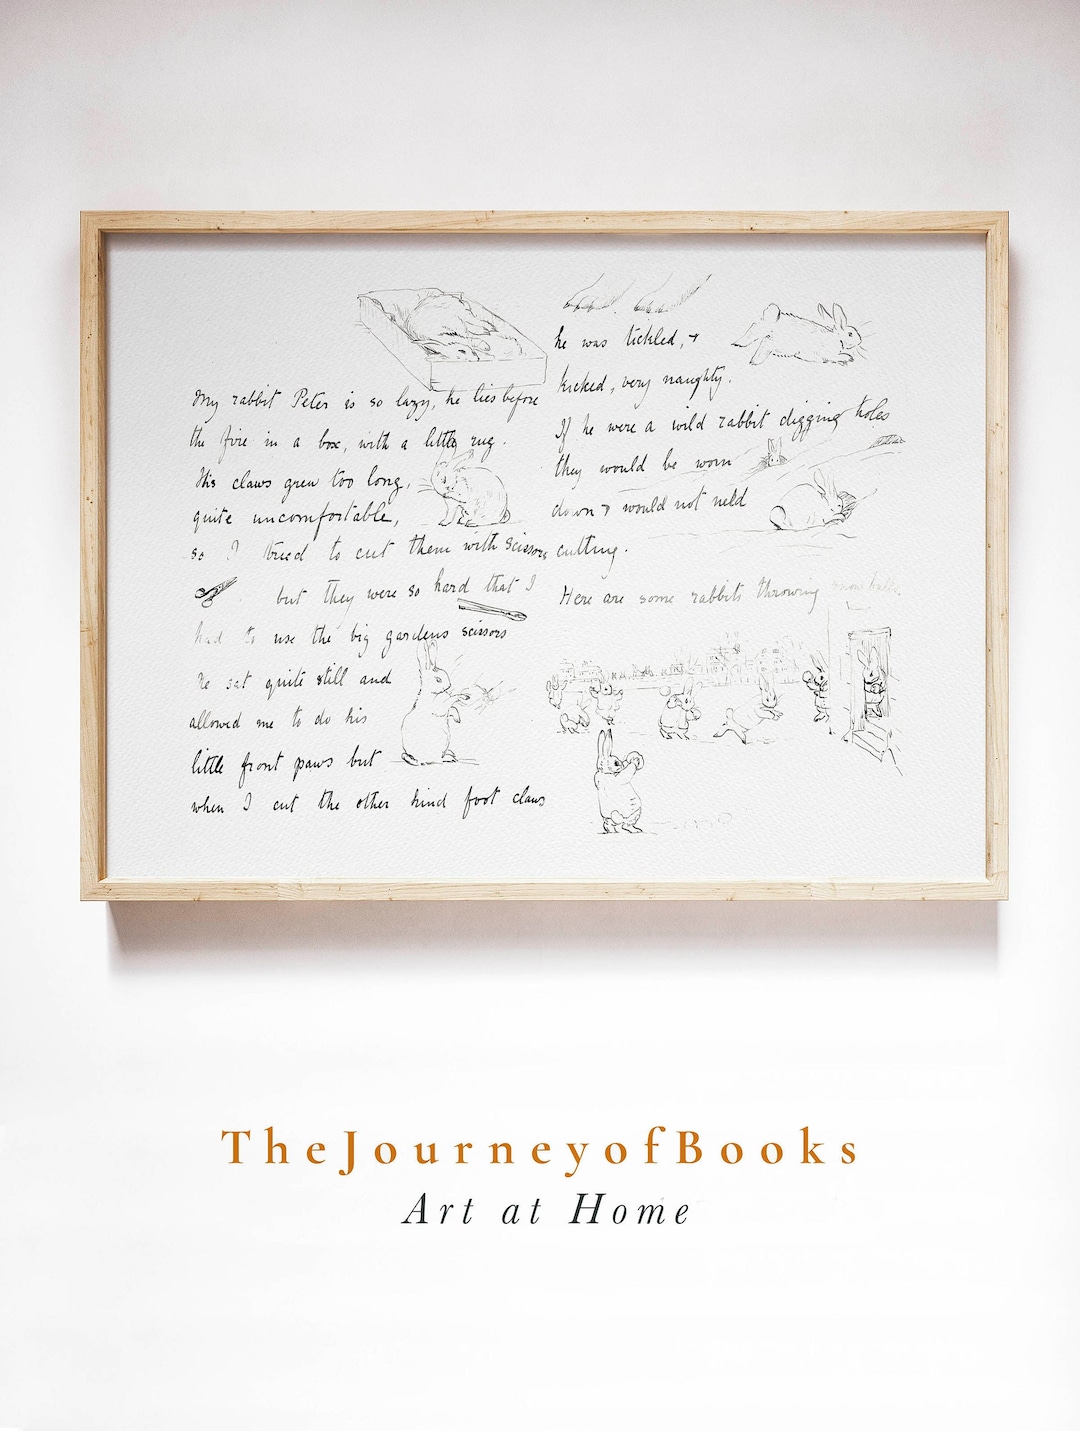 My rabbit Peter is so lazy, he lies before
the fire in a box, with a little rug.
His claws grew too long,
quite uncomfortable,
so I tried to cut them with scissors
but they were so hard that I
had to use the big gardens scissors
he sat quite still and
allowed me to do his
little front paws but
when I cut the other hind foot claws
he was tickled, &
kicked, very naughty.
If he were a wild rabbit digging holes
they would be worn
down & would not need
cutting.
Here are some rabbits throwing snow balls.
TheJourneyofBooks
Art at Home